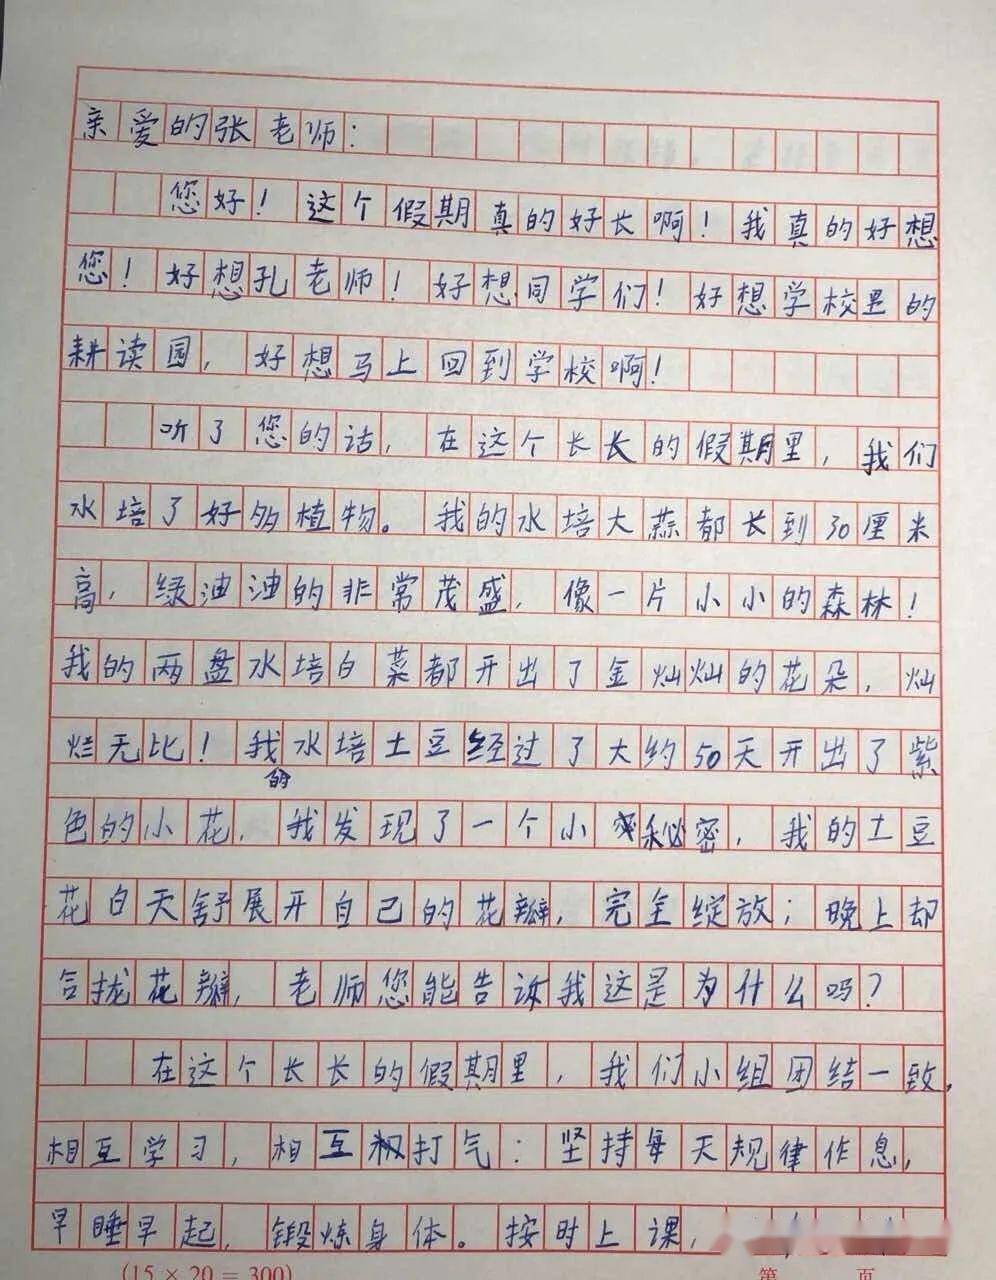 亲爱的张老师：
您好！这个假期真的好长啊！我真的好想
您！好想孔老师！好想同学们！好想学校里的
耕读园，好想马上回到学校啊！
听了您的话，在这个长长的假期里，我们
水培了好多植物。我的水培大蒜都长到30厘米
高，绿油油的非常茂盛，像一片小小的森林！
我的两盘水培白菜都开出了金灿灿的花朵，灿
烂无比！我的水培土豆经过了大约50天开出了紫
色的小花，我发现了一个小秘密，我的土豆
花白天舒展开自己的花瓣，完全绽放；晚上却
合拢花瓣，老师您能告诉我这是为什么吗？
在这个长长的假期里，我们小组团结一致，
相互学习，相互打气：坚持每天规律作息，
早睡早起，锻炼身体。按时上课，
(15×20=300)
第 页